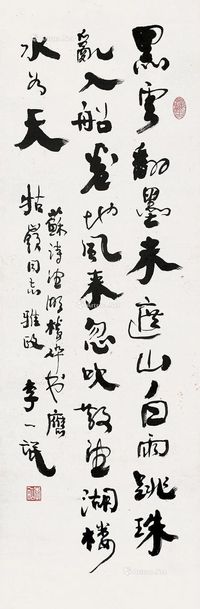 黑雲翻墨未遮山白雨跳珠
亂入船卷地風来忽吹散望湖樓
水如天
蘇詩望湖樓醉書應
牯嶺同志雅政 李一氓